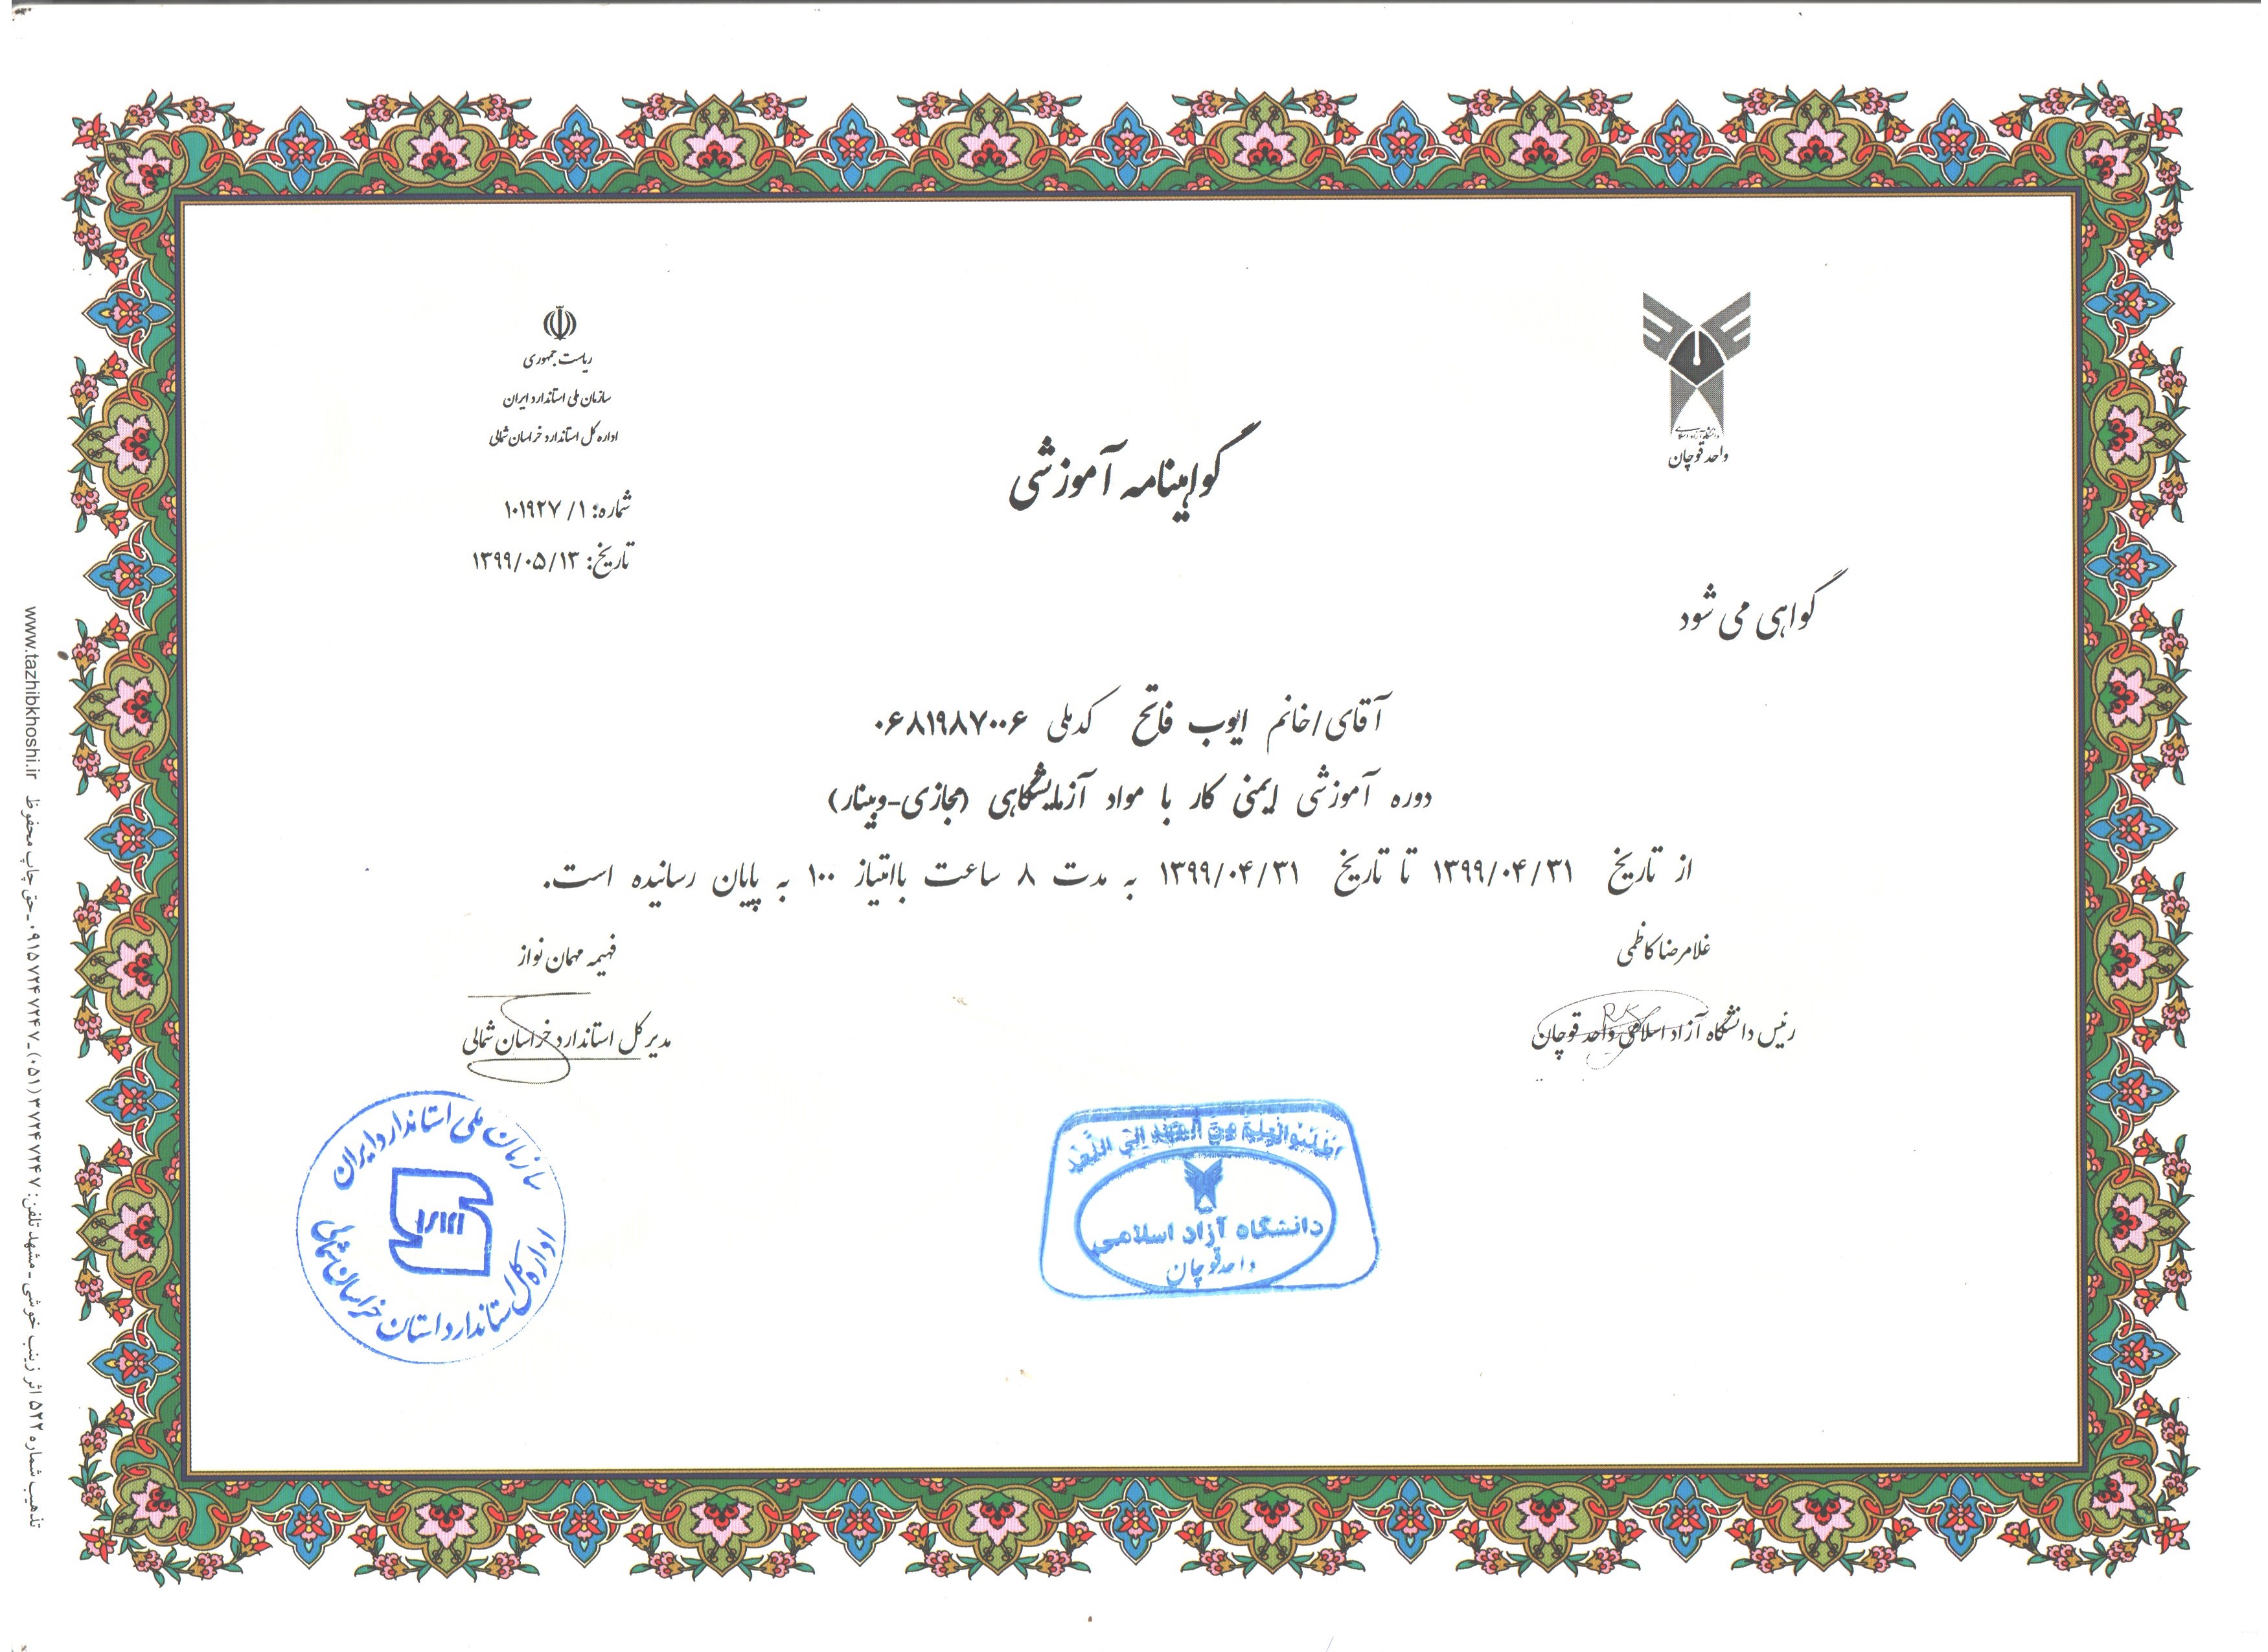 ریاست جمهوری
سازمان ملی استاندارد ایران
اداره کل استاندارد خراسان شمالی
شماره: ۱/ ۱۰۱۹۲۷
تاریخ: ۱۳۹۹/۰۵/۱۳
دانشگاه آزاد اسلامی
واحد قوچان
گواهینامه آموزشی
گواهی می شود
آقای/خانم ایوب فاتح کدملی ۰۶۸۱۹۸۷۰۰۶
دوره آموزشی ایمنی کار با مواد آزمایشگاهی (مجازی-وبینار)
از تاریخ ۱۳۹۹/۰۴/۳۱ تا تاریخ ۱۳۹۹/۰۴/۳۱ به مدت ۸ ساعت باامتیاز ۱۰۰ به پایان رسانیده است.
غلامرضا کاظمی
رئیس دانشگاه آزاد اسلامی واحد قوچان
فهیمه مهمان نواز
مدیر کل استاندارد خراسان شمالی
اطلبوا العلم من المهد الی اللحد
دانشگاه آزاد اسلامی
واحد قوچان
سازمان ملی استاندارد ایران
اداره کل استاندارد استان خراسان شمالی
تذهیب شماره ۵۲۲ اثر زینب خوشی - مشهد تلفن: ۳۷۲۴۷۲۴۷ (۰۵۱) - ۰۹۱۵۷۲۴۷۲۴۷ - حق چاپ محفوظ www.tazhibkhoshi.ir